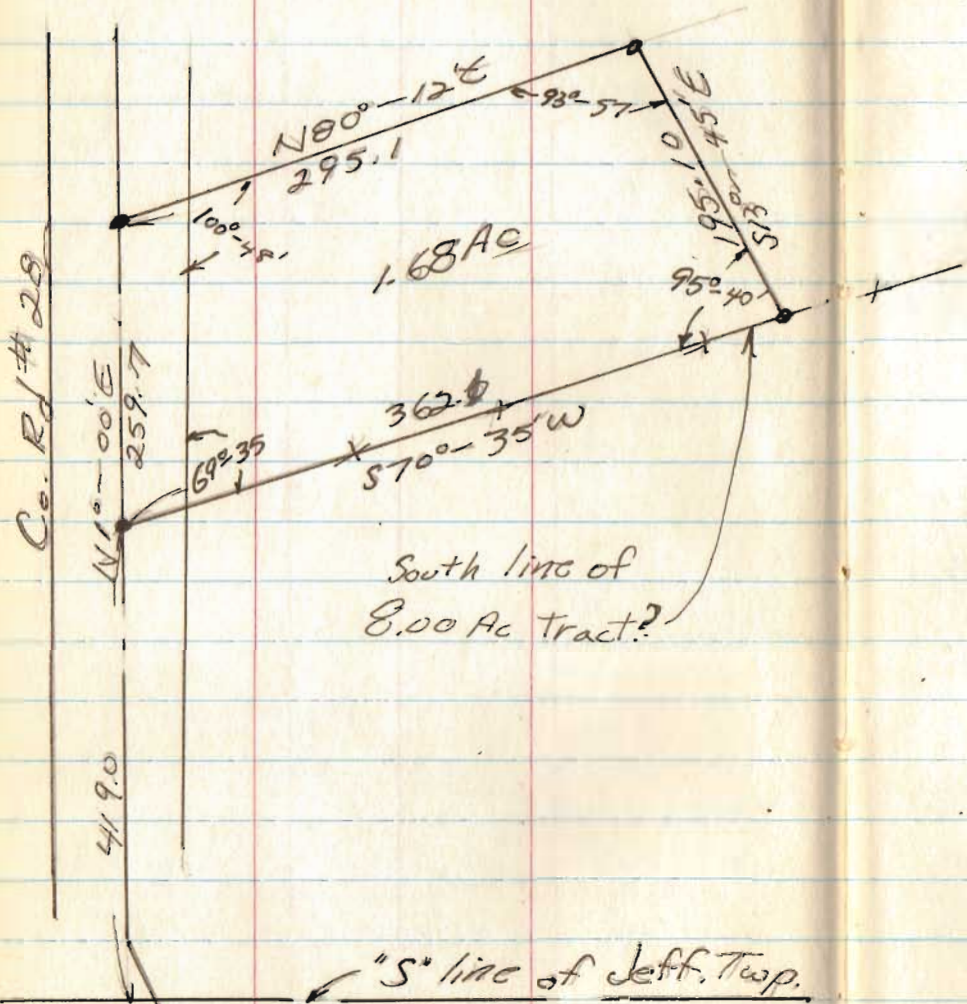 N80°-12'E
295.1
93°-57
195.10
S13°-45'E
100°-48'
1.68 Ac
95°-40
Co. Rd # 28
N1°-00'E
259.7
362.6
S70°-35'W
69°-35
South line of
8.00 Ac Tract?
419.0
"S" line of Jeff. Twp.